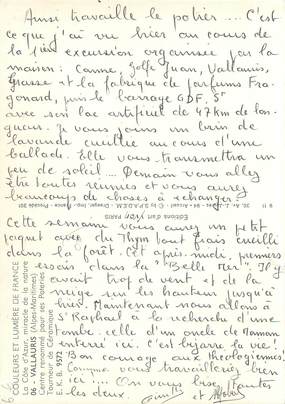 Ainsi travaille le potier .... C'est
ce que j'ai vu hier au cours de
la 1ère excursion organisée par la
maison : Cannes, golfe Juan, Vallauris,
Grasse et la fabrique de parfums Fra-
gonard, puis le barrage EDF, St
avec son lac artificiel de 47 km de lon-
gueur. Je vous joins un brin de
lavande cueillie au cours d'une
ballade. Elle vous transmettra un
peu de soleil .... Demain vous allez
être toutes reunies et vous aurez
beaucoup de choses à échanger.
Editions d'art Yvon PARIS
Cette semaine vous aurez un petit
paquet avec du Thym tout frais cueilli
dans la forêt. Cet après-midi, premiers
essais dans la "Belle Mer". Il y
avait trop de vent et de la
neige sur les hauteurs jusqu'à
hier. Maintenant nous allons à
St Raphaël à la recherche d'une
tombe. Celle d'un oncle de Maman
enterré ici. C'est bizarre la vie !
Bon courage aux théologiennes !
Comme vous travailleriez bien
ici .... On vous bise toutes
les deux.
COULEURS ET LUMIÈRE DE FRANCE
La Côte d'Azur, miracle de la nature
06 - VALLAURIS (Alpes-Maritimes)
Centre renommé pour ses Poteries
Tourneur de Céramique
E. K. B. 9572